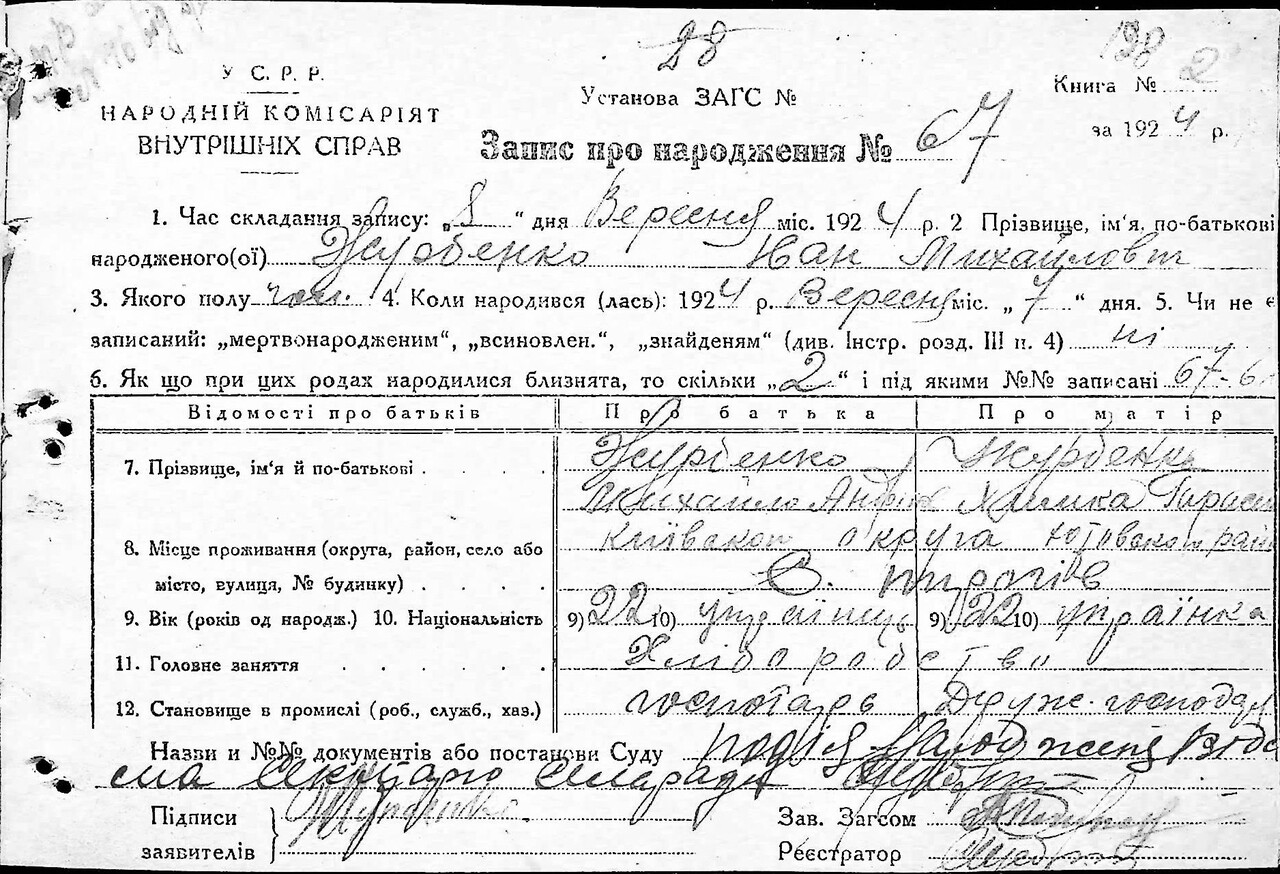 28
198
У С. Р. Р.
НАРОДНІЙ КОМІСАРІЯТ
ВНУТРІШНІХ СПРАВ
Установа ЗАГС №
Книга № 2
за 1924 р.
Запис про народження № 67
1. Час складання запису: „8“ дня Вересня міс. 1924 р. 2 Прізвище, ім‘я, по-батькові
народженого(ої) Журбенко Іван Михайлович
3. Якого полу чол. 4. Коли народився (лась): 1924 р. Вересня міс. „7“ дня. 5. Чи не є
записаний: „мертвонародженим“, „всиновлен.“, „знайденям“ (див. Інстр. розд. III п. 4) ні
6. Як що при цих родах народилися близнята, то скільки „2“ і під якими №№ записані 67-6
Відомості про батьків Про батька Про матір
7. Прізвище, ім‘я й по-батькові Журбенко Журбенко
Михайло Андрій Химка Гарас
8. Місце проживання (округа, район, село або Київской округа
місто, вулиця, № будинку) С. Пирогів
9. Вік (років од народж.) 10. Національність 9) 22 10) українець 9) 22 10) українка
11. Головне заняття Хліборобство
12. Становище в промислі (роб., служб., хаз.) господарь Друж. господаря
Назви и №№ документів або постанови Суду
секретарю сельради
Підписи
заявителів
Зав. Загсом
Реєстратор